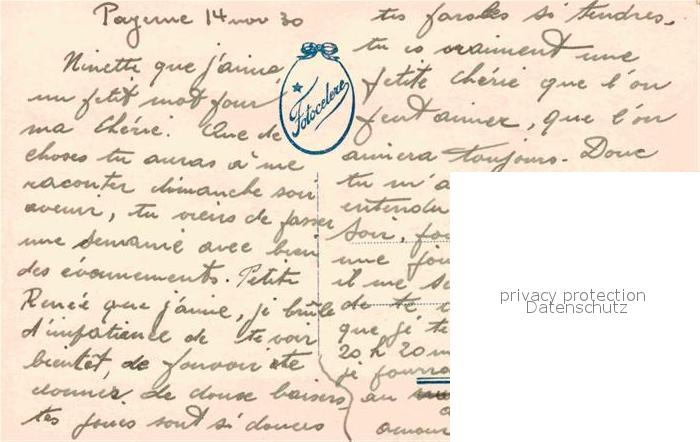 Payerne 14 nov 30
Ninette que j'aime
un petit mot pour
ma chérie. Que de
choses tu auras à me
raconter dimanche soir
avenir, tu viens de passer
une semaine avec bien
des évènements. Petite
Renée que j'aime, je brûle
d'impatience de te voir
bientôt, de pouvoir te
donner de doux baisers
tes joues sont si douces
Fotocelere
tes paroles si tendres,
tu es vraiment une
petite chérie que l'on
peut aimer, que l'on
aimera toujours. Donc
tu m'a
entendu
soir, 
une 
il me 
de te
que je te
20 h 20
je pourra
au
amour
privacy protection
Datenschutz